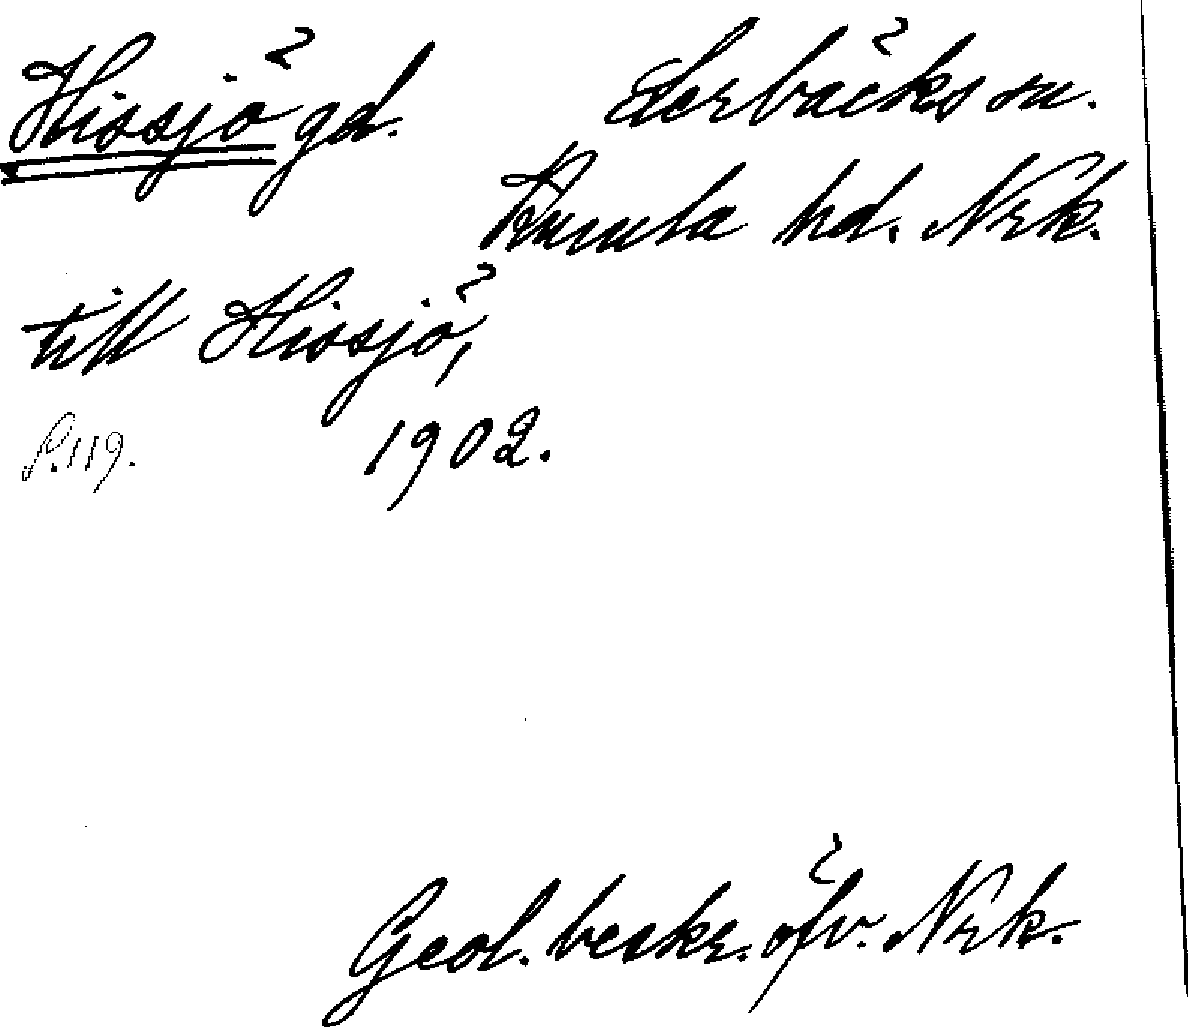 Hissjö gd. Lerbäcks sn.
Kumla hd. Nrk.
till Hissjö,
S. 119. 1902.
Geol. beskr. öfv. Nrk.